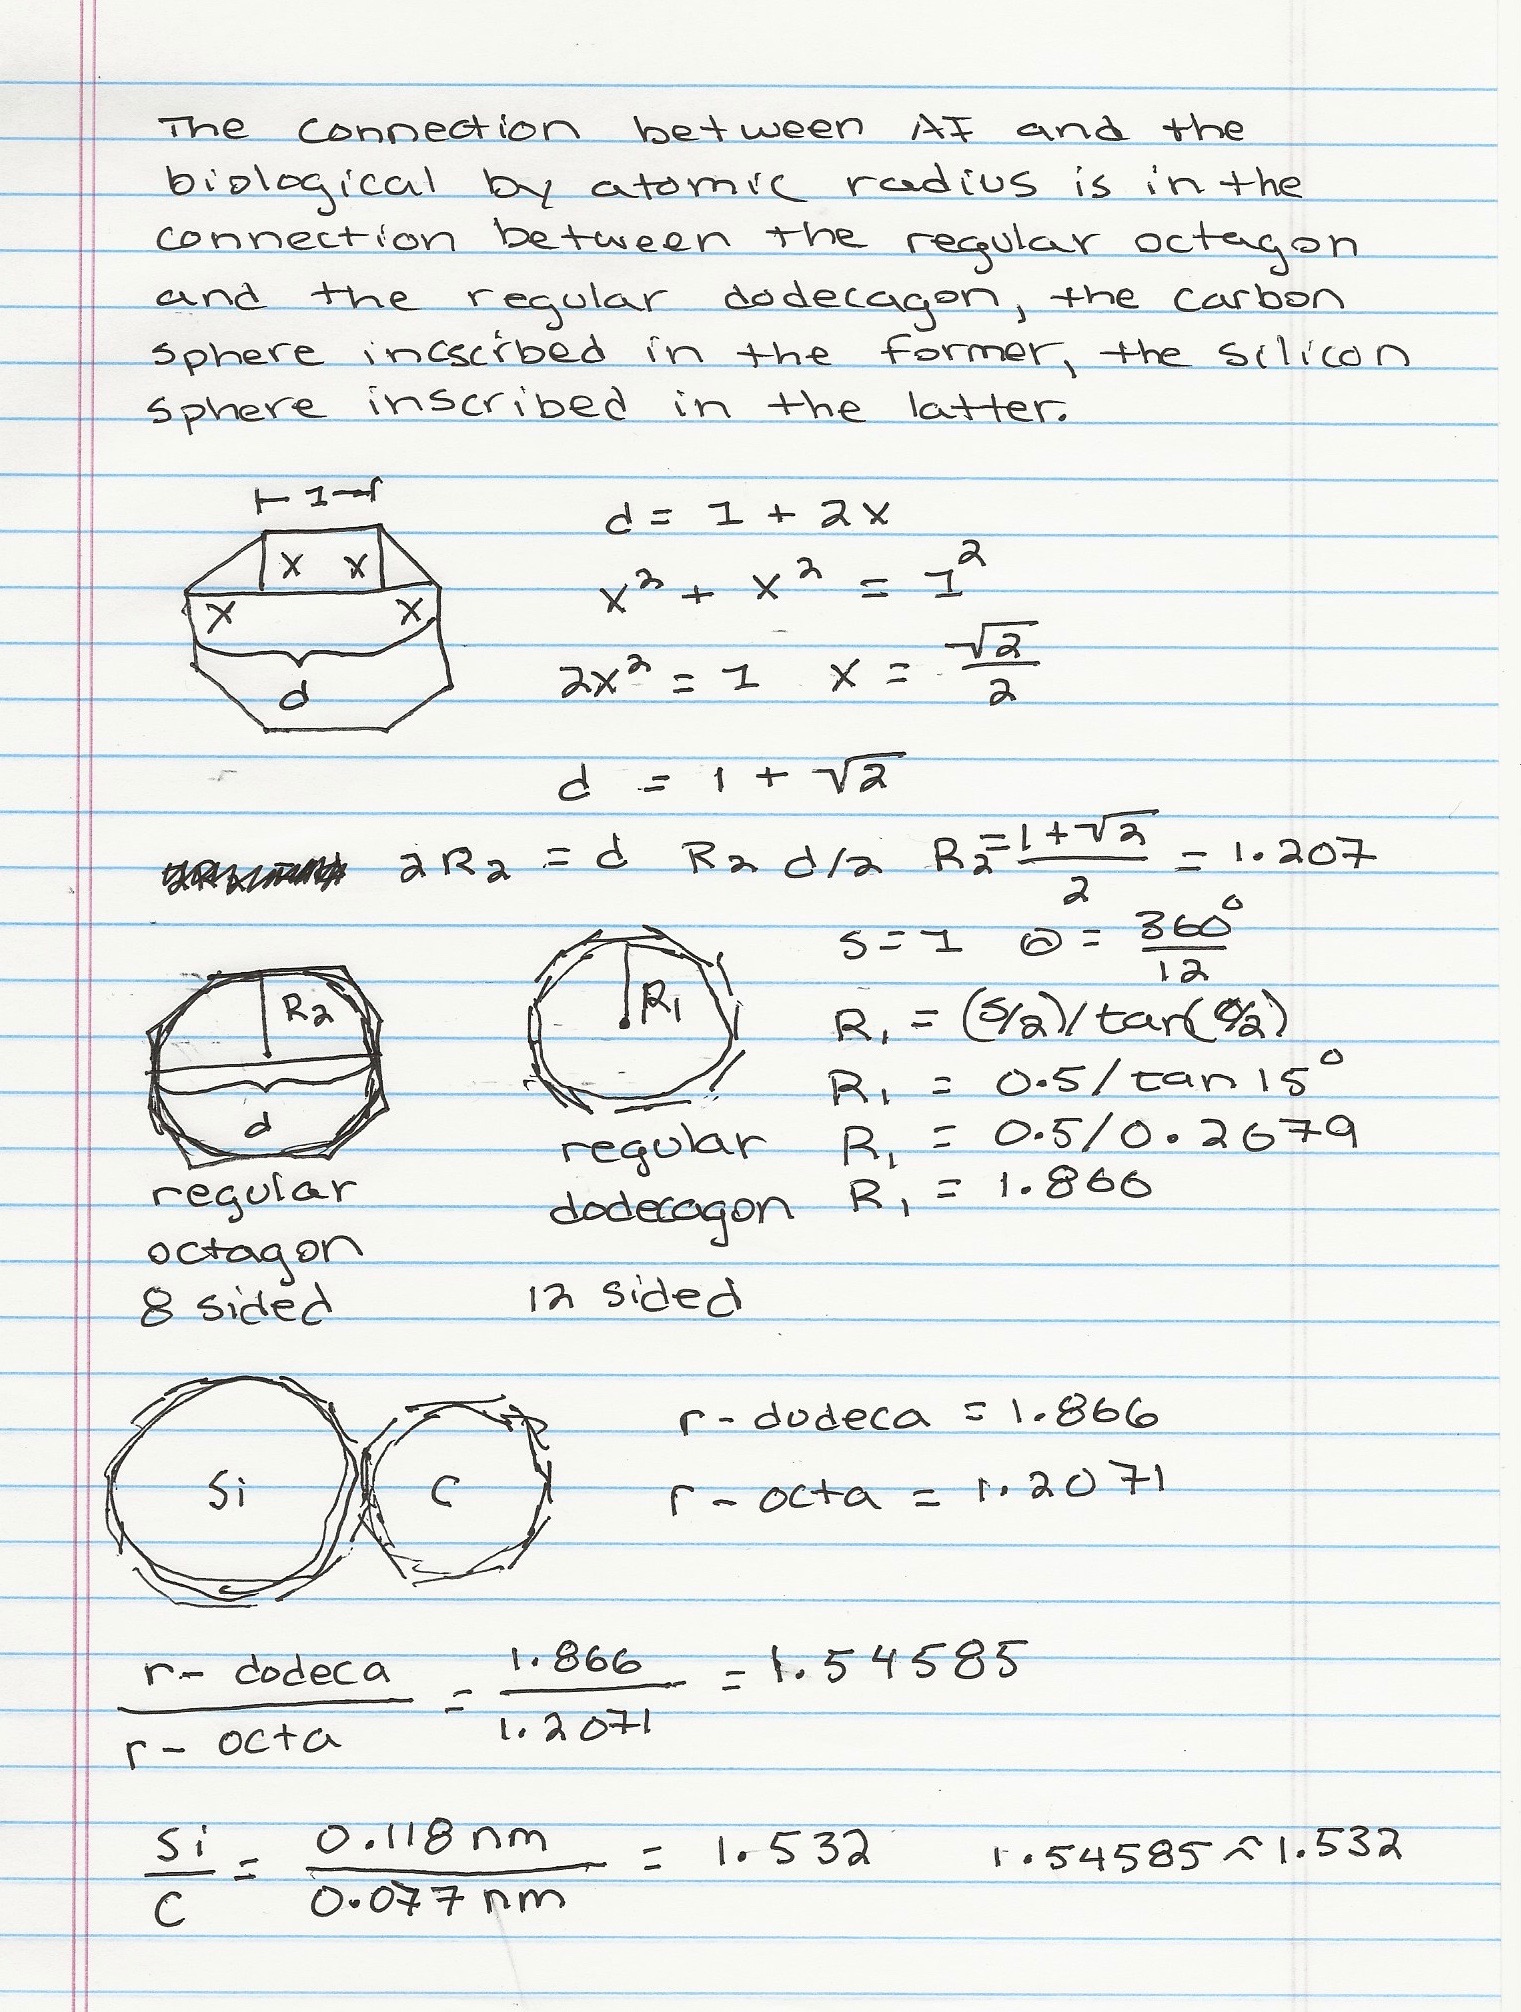 The connection between AI and the
biological by atomic radius is in the
connection between the regular octagon
and the regular dodecagon, the carbon
sphere incscribed in the former, the silicon
sphere inscribed in the latter.
1
d = 1 + 2x
x x
x² + x² = 1²
x x
2x² = 1 x = √2/2
d
d = 1 + √2
2R₂ = d R₂ d/2 R₂ = (1+√2)/2 = 1.207
s = 1 θ = 360°/12
R₂
R₁
R₁ = (s/2)/tan(θ/2)
R₁ = 0.5/tan 15°
d
regular
dodecagon
R₁ = 0.5/0.2679
R₁ = 1.866
regular
octagon
8 sided
12 sided
Si C
r-dodeca = 1.866
r-octa = 1.2071
r-dodeca/r-octa = 1.866/1.2071 = 1.54585
Si/C = 0.118 nm/0.077 nm = 1.532 1.54585 ~ 1.532